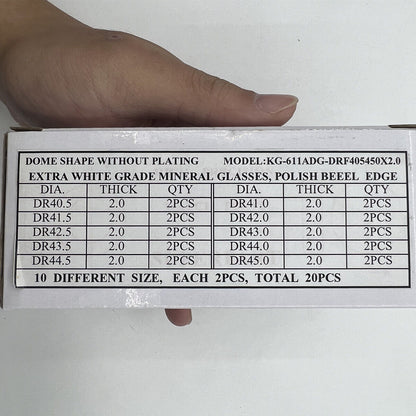 DOME SHAPE WITHOUT PLATING MODEL:KG-611ADG-DRF405450X2.0
EXTRA WHITE GRADE MINERAL GLASSES, POLISH BEEEL EDGE
DIA. THICK QTY DIA. THICK QTY
DR40.5 2.0 2PCS DR41.0 2.0 2PCS
DR41.5 2.0 2PCS DR42.0 2.0 2PCS
DR42.5 2.0 2PCS DR43.0 2.0 2PCS
DR43.5 2.0 2PCS DR44.0 2.0 2PCS
DR44.5 2.0 2PCS DR45.0 2.0 2PCS
10 DIFFERENT SIZE, EACH 2PCS, TOTAL 20PCS